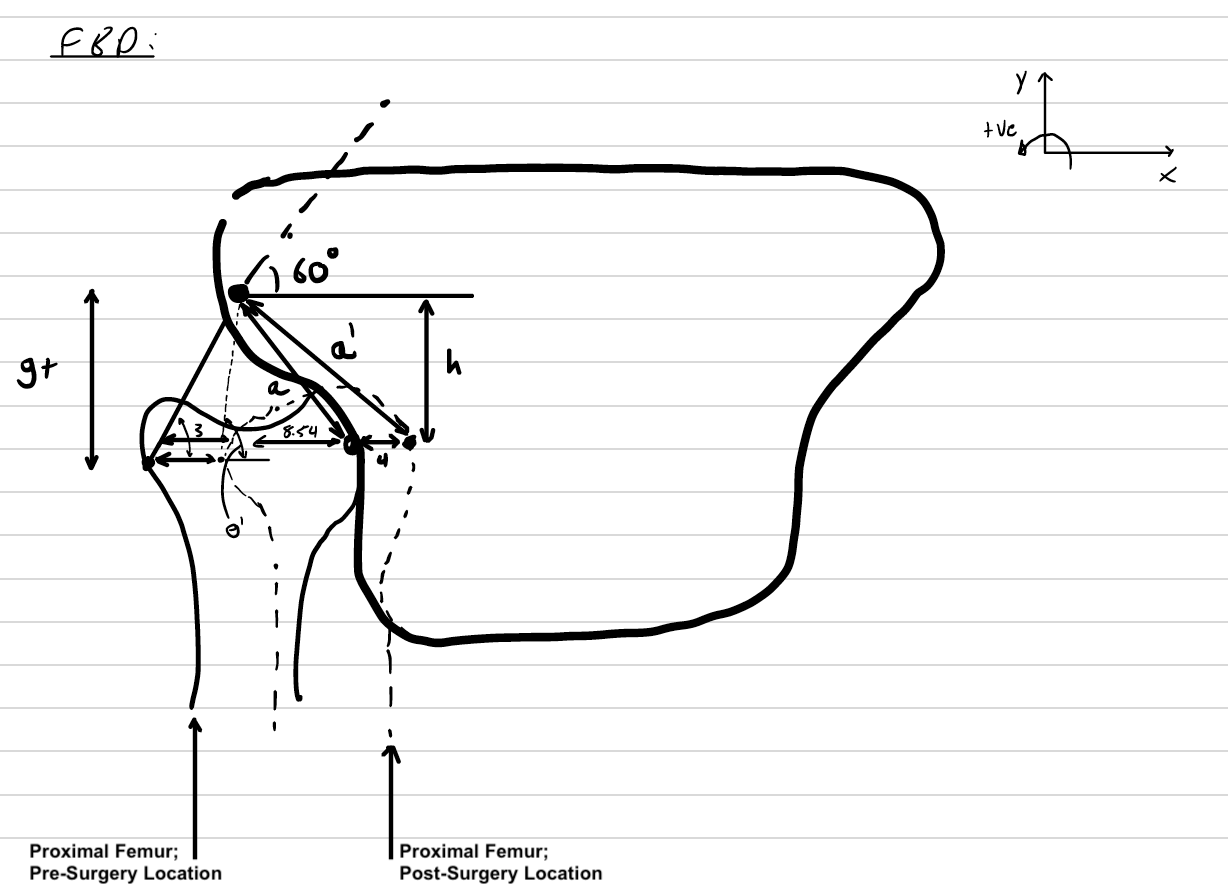 FBD:
y
+ve
x
60°
a'
gt
h
a
3
8.54
4
θ'
Proximal Femur;
Pre-Surgery Location
Proximal Femur;
Post-Surgery Location